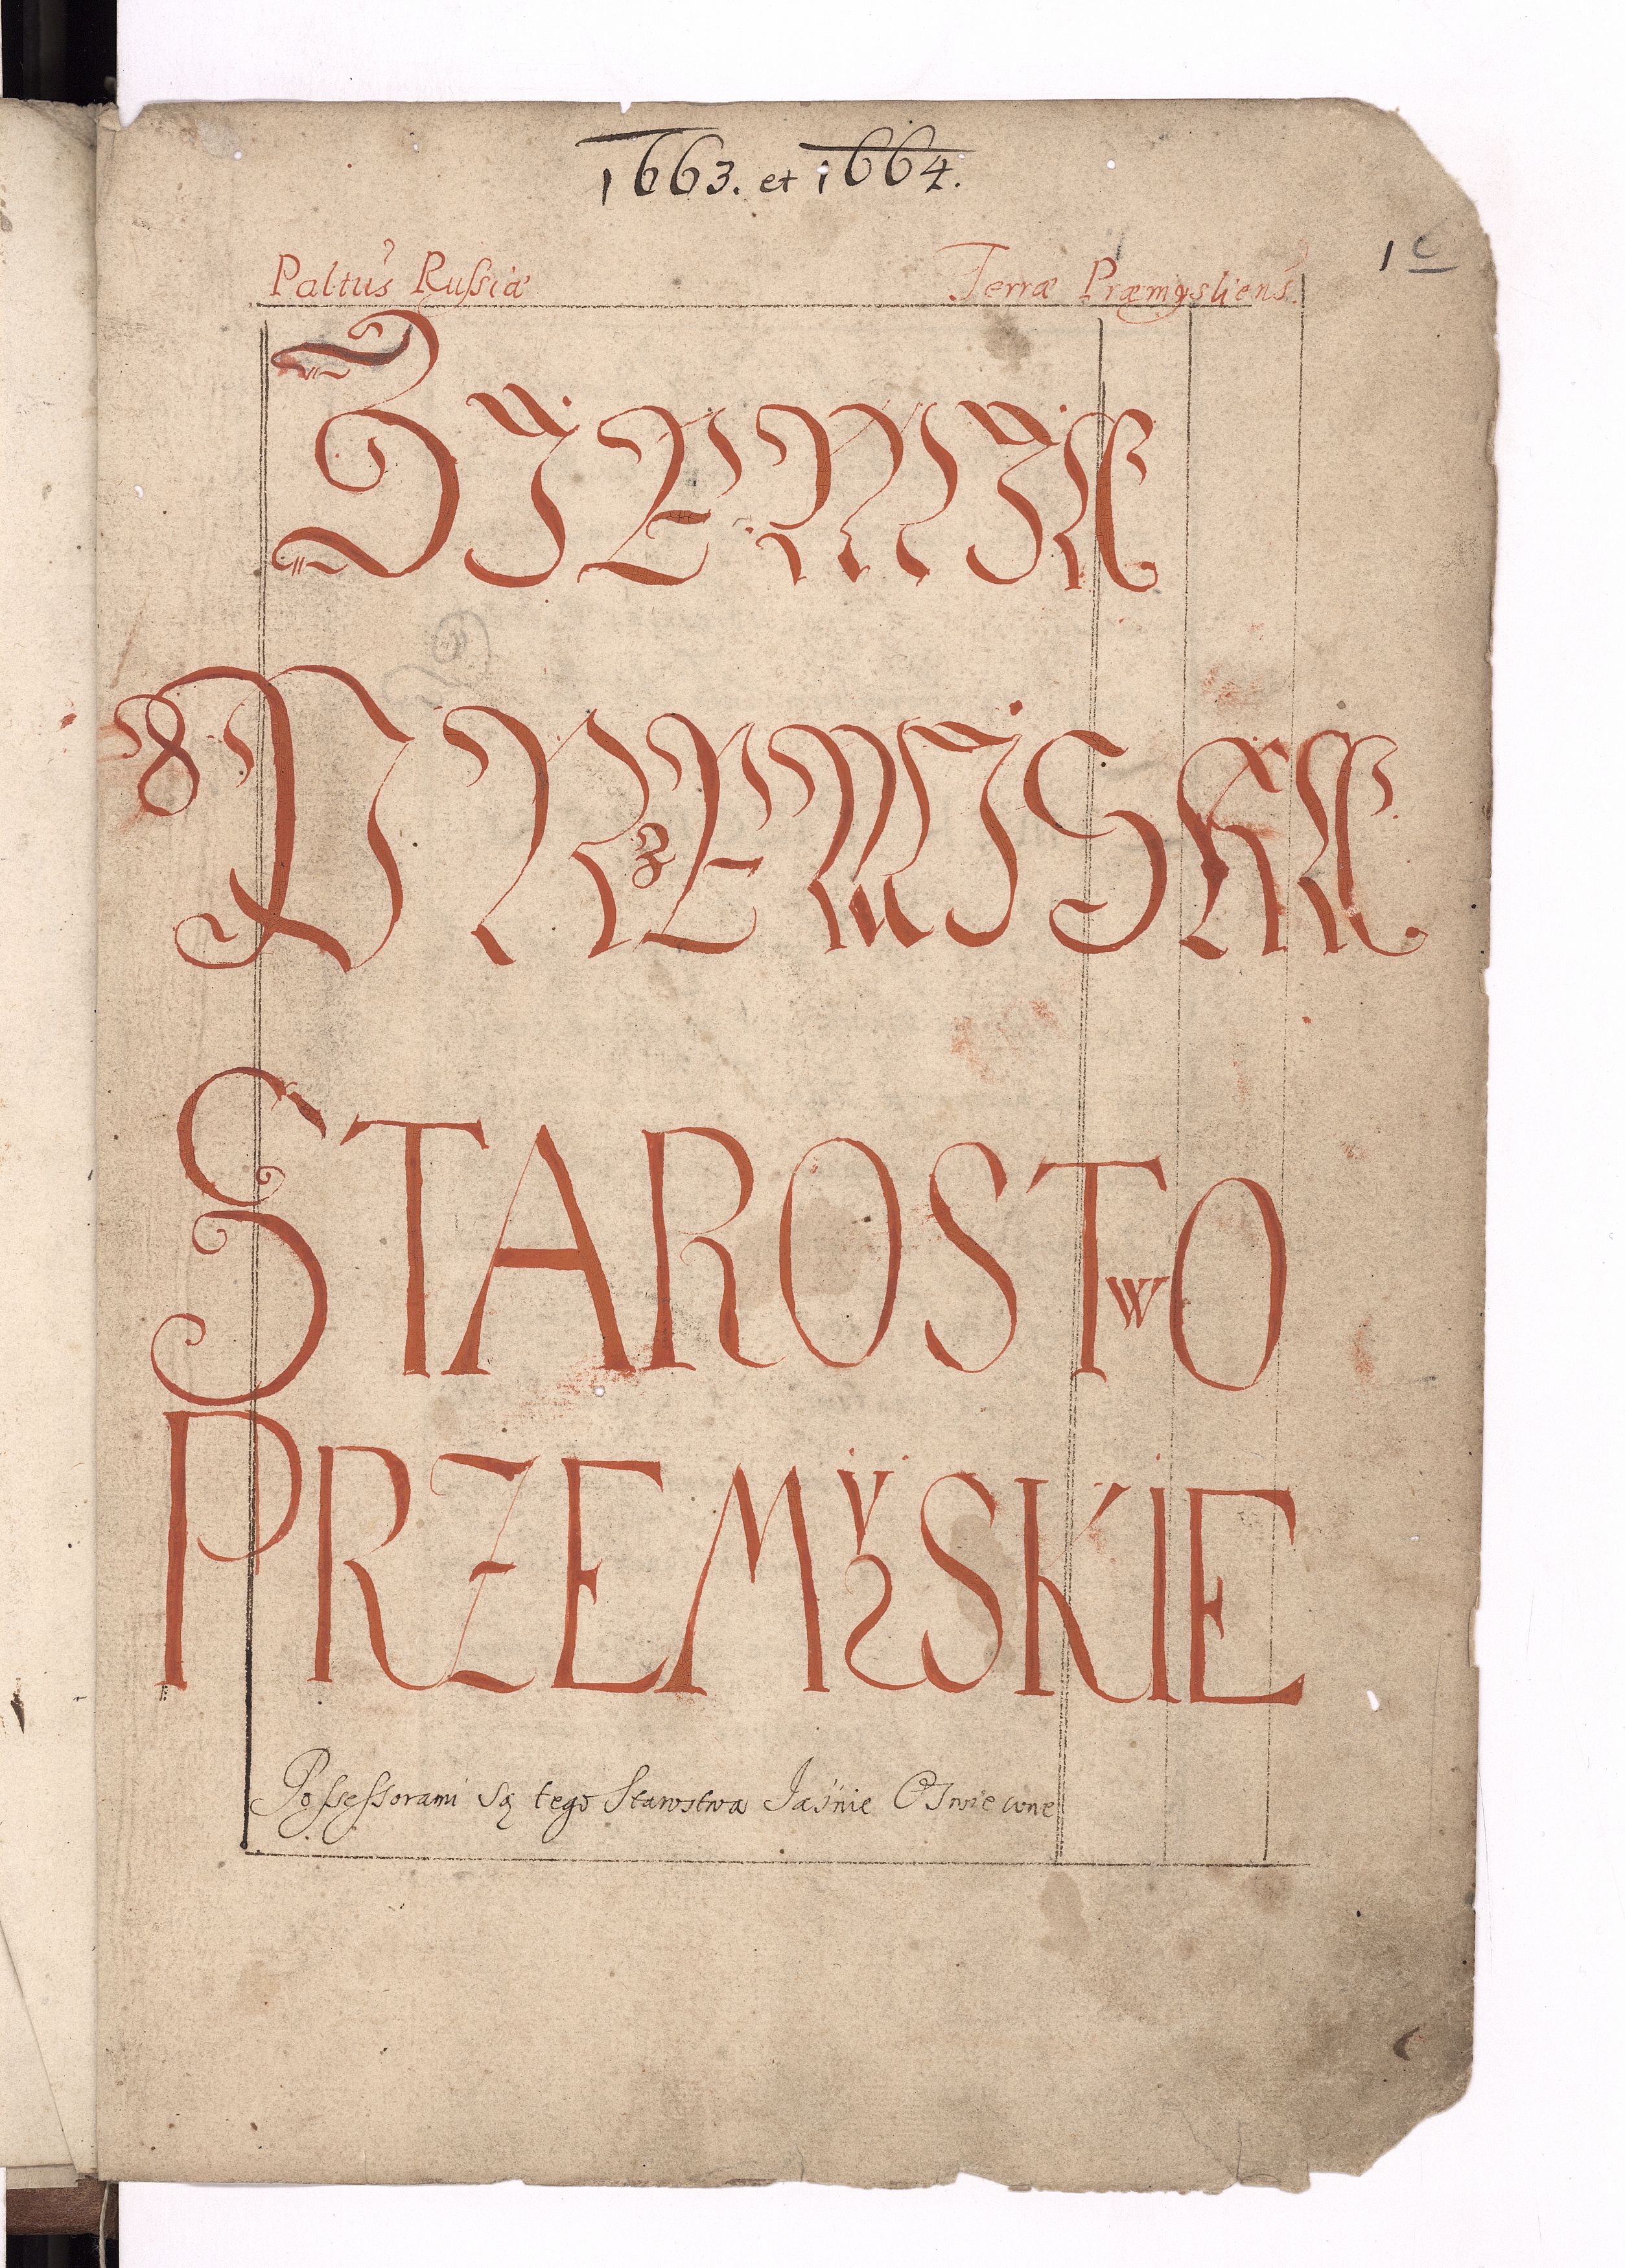 1663. et 1664.
1
Paltus Russiæ Terræ Præmysliens.
ZIEMIA
PRZEMISKA
STAROSTwO
PRZEMySKIE
Possessorami są tego Starostwa Jaśnie Oświecone